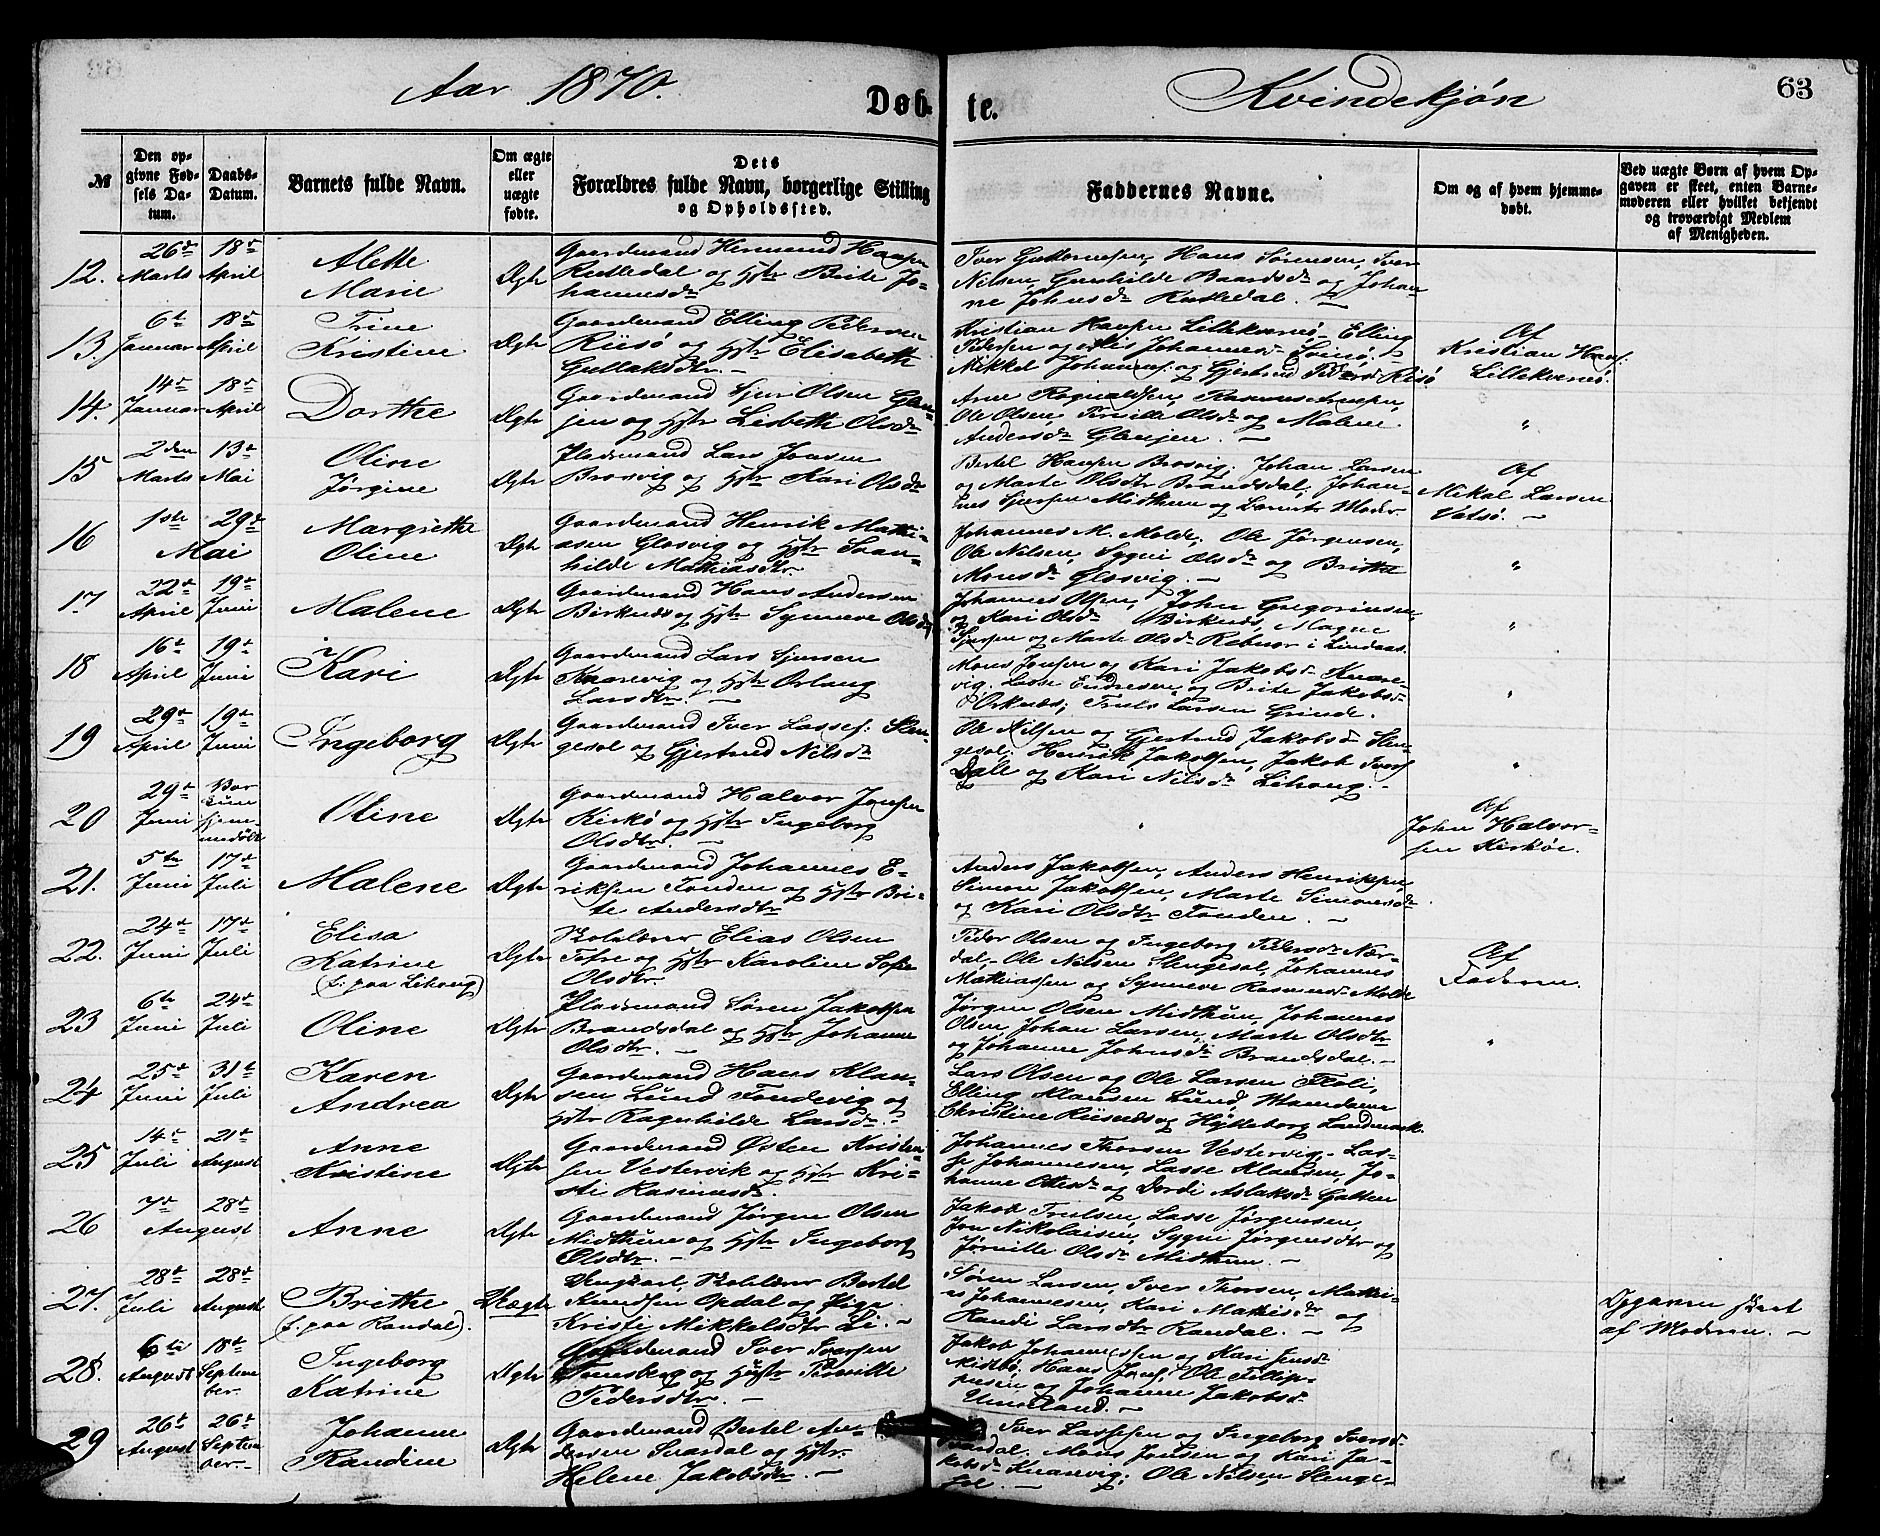 Aar 1870.
Døb-
te.
Kvindekjøn
63
№
Den op-
givne Fød-
sels Da-
tum.
Daabs-
Datum.
Barnets fulde Navn.
Om ægte
eller
uægte
fødte.
Dets
Forældres fulde Navn, borgerlige Stilling
og Opholdssted.
Faddernes Navne.
Om og af hvem hjemme-
døbt.
Ved uægte Børn af hvem Op-
gaven er skeet, enten Barne-
moderen eller hvilket bekjendt
og troværdigt Medlem
af Menigheden.
12.
26de
Marts
18de
April
Alette
Marie
Ægte
Gaardmand Hermund Hansen
Rutledal og Hstr Brite Jo-
hannesdr
Iver Guttormsen, Hans Sørensen, Iver
Nilsen, Gunhilde Baardsdr og Johan-
ne Johnsdr Rutledal. —
13.
6te
Januar
18de
April
Trine
Kristine
Ægte
Gaardmand Elling Pedersen
Riisø og Hstr Elisabeth
Gullaksdtr. —
Kristian Hansen Lillekvernø, Elling
Pedersen og Johannesdr
Mikkel Johannes. og Gjertrud Pedersdr Risø
Af
Kristian Hans.
Lillekvernø.
14.
14de
Januar
18de
April
Dorthe
Ægte
Gaardmand Sjur Olsen Glen-
jen og Hstr Lisbeth Olsdr
Arne Rognaldsen, Rasmus Arnesen,
Ole Olsen, Pernille Olsdr og Malene
Andersdr Glenjen. —
"
15
2den
Marts
13de
Mai
Oline
Jørgine
Ægte
Pladsmand Lars Jonsen
Brosvig og Hstr Kari Olsdr
Bertel Hansen Brosvig, Johan Larsen
og Marte Olsdtr Brandsdal, Johan-
nes Sjursen Midthun og Barnets Moder
Af
Mikal Larsen
Vatsø. —
16
1ste
29de
Mai
Margrethe
Oline
Ægte
Gaardmand Henrik Mathi-
asen Glosvig og Hstr Svan-
hilde Mathiasdtr.
Johannes M. Molde, Ole Jørgensen,
Ole Nilsen, Sygni Olsdr og Brithe
Monsdr Glosvig. —
"
17
22de
April
19de
Juni
Malene
Ægte
Gaardmand Hans Andersen
Birknes og Hstr Synneve Olsdr
Johannes Olsen, John Gregoriusen,
og Kari Olsdr Birknes, Magne
Sjursen og Marte Olsdr Rebnor i Lindaas.
"
18
16de
April
19de
Juni
Kari
Ægte
Gaardmand Lars Sjursen
Knarevig og Hstr Orlaug
Larsdtr. —
Mons Jonsen og Kari Jakobsdr Knare-
vig. Lasse Endresen og Brite Jakobsdr
Orknes; Truls Larsen Grinde.
"
19
29de
April
19de
Juni
Ingeborg
Ægte
Gaardmand Iver Lasses. Slen-
gesol og Gjertrud Nilsdr
Ole Nilsen og Gjertrud Jakobsdr Slen-
gesol; Henrik Jakobsen, Jakob Ivers
Dalle og Kari Nilsdr Lihaug. -
"
20
29de
Juni
Oline
Ægte
Gaardmand Halvor Jonsen
Kirkø og Hstr Ingeborg
Olsdtr. —
Af
John Halvor-
sen Kirkøe.
21.
5te
Juni
17de
Juli
Malene
Ægte
Gaardmand Johannes E-
riksen Fonden og Hstr Bri-
te Andersdtr
Anders Jakobsen, Anders Henriksen,
Simon Jakobsen, Marte Simonsdr
og Kari Olsdtr Fonden. —
22.
24de
Juni
17de
Juli
Elisa
Katrine
(f. paa Lihaug)
Ægte
Skolelærer Elias Olsen
og Hstr Karoline Sofie
Olsdtr.
Peder Olsen og Ingeborg Pedersdr Nor-
dal, Ole Nilsen Slengesol, Johannes
Mathiassen og Synneve Rasmusdr Molde
Af
Faderen.
23
6te
Juni
24de
Juli
Oline
Ægte
Pladsmand Søren Jakobsen
Brandsdal og Hstr Johanne
Olsdtr. —
Jørgen Olsen Midthun, Johannes
Olsen, Johan Larsen, Marte Olsdtr
og Johanne Johnsdr Brandsdal. —
"
24
25de
Juni
31te
Juli
Karen
Andrea
Ægte
Gaardmand Hans Klau-
sen Lund Fondevig og
Hstr Ragnhilde Larsdr.
Lars Olsen og Ole Larsen
Elling Klausen Lund, Madame
Christine Riisnæs og Hylleborg Landmark.
25
14de
Juli
21de
August
Anne
Kristine
Ægte
Gaardmand Østen Kristen-
sen Vestervik og Hstr Kri-
sti Rasmusdr.
Johannes Thorsen Vestervig, Las-
se Johannesen, Lasse Klausen, Jo-
hanne Ottesdr og Dordi Aslaksdr
26
7de
28de
August
Anne
Ægte
Gaardmand Jørgen Olsen
Midthun og Hstr Ingeborg
Olsdtr. —
Jakob Trulsen, Lasse Jørgensen,
Jon Nikolaisen, Sygni Jørgensdtr og
Jørnille Olsdr Midthun. —
27.
28de
Juli
28de
August
Brithe
(f. paa Randal).
Uægte
Ungkarl, Skolelærer Bertel
Knudsen Opdal og Pige
Kristi Mikkelsdtr Li. —
Søren Larsen, Iver Thorsen, Mathi-
as Johannesen, Kari Mathisdr og
Randi Larsdtr Randal. —
Opgaven skeet
af Moderen. —
28.
6te
August
18de
Septem-
ber.
Ingeborg
Katrine
Ægte
Gaardmand Iver Iversen
Tunsberg og Hustr Pernille
Pedersdtr. —
Jakob Johannessen og Kari Jensdr
Midtbø, Hans Jons, Ole Fillip-
pusen og Johanne Jakobsdr
—
29
26de
August
26de
Septem-
ber
Johanne
Randine
Ægte
Gaardmand Bertel An-
dersen Svardal og Hstr.
Helene Jakobsdr. —
Iver Lassesen og Ingeborg Iversdr
Svardal. Mons Jonsen og Kari Ja-
kobsdr Knarevig; Ole Nilsen Slenge-
sol. —